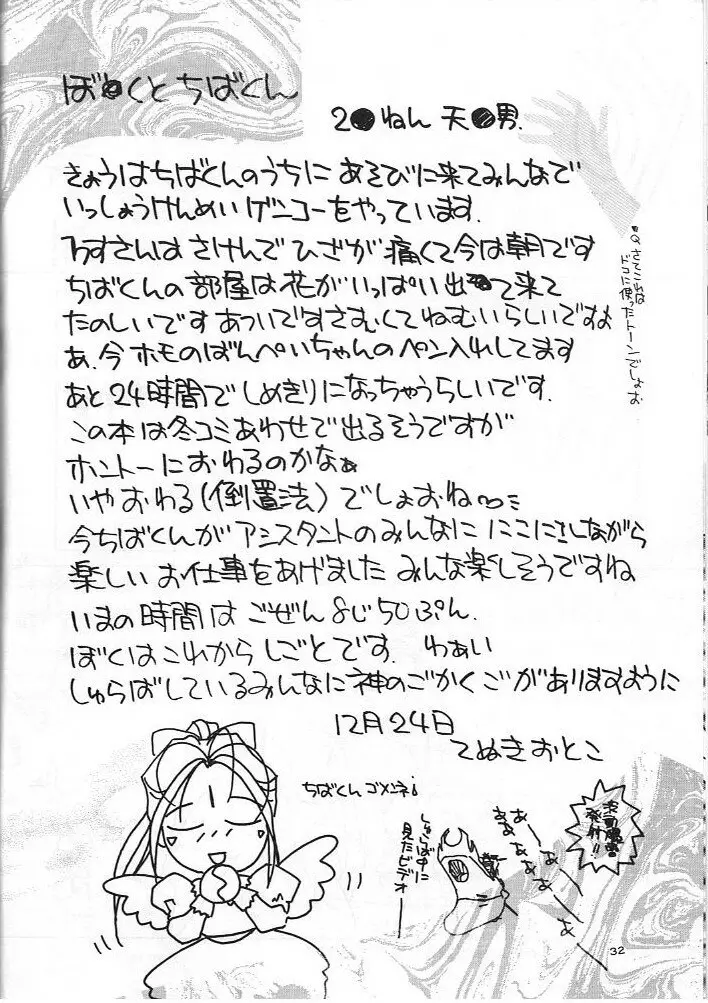 ぼ●くとちばくん
2●ねん 天●男.
きょうはちばくんのうちに あそびに来てみんなで
いっしょうけんめい ゲンコーをやっています.
さけんで ひざが 痛くて今は朝です
ちばくんの部屋は花がいっぱい出て来て
たのしいです あついですさむくてねむいらしいですよ
あ.今ホモのばんぺいちゃんのペン入れしてます
あと24時間でしめきりになっちゃうらしいです.
この本は冬コミあわせで出るそうですが
ホントーにおわるのかなぁ
いやおわる(倒置法)でしょおね〜
今ちばくんがアシスタントのみんなに にこにこしながら
楽しい お仕事をあげました みんな楽しそうですね
いまの時間は ごぜん8じ50ぷん.
ぼくはこれからしごとです. わぁい
しゅらばしているみんなに神のごかくごがありますように
12月24日
てぬきおとこ
Q.さてこれは
ドコに使ったトーンでしょお
ちばくんゴメンネ!
しゅらば中に
見たビデオ
あーああああ
発射!!
32